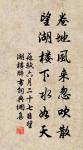 卷地風來忽吹散
望湖樓下水如天
蘇軾六月二十七日望
湖樓醉書詩詞典網集